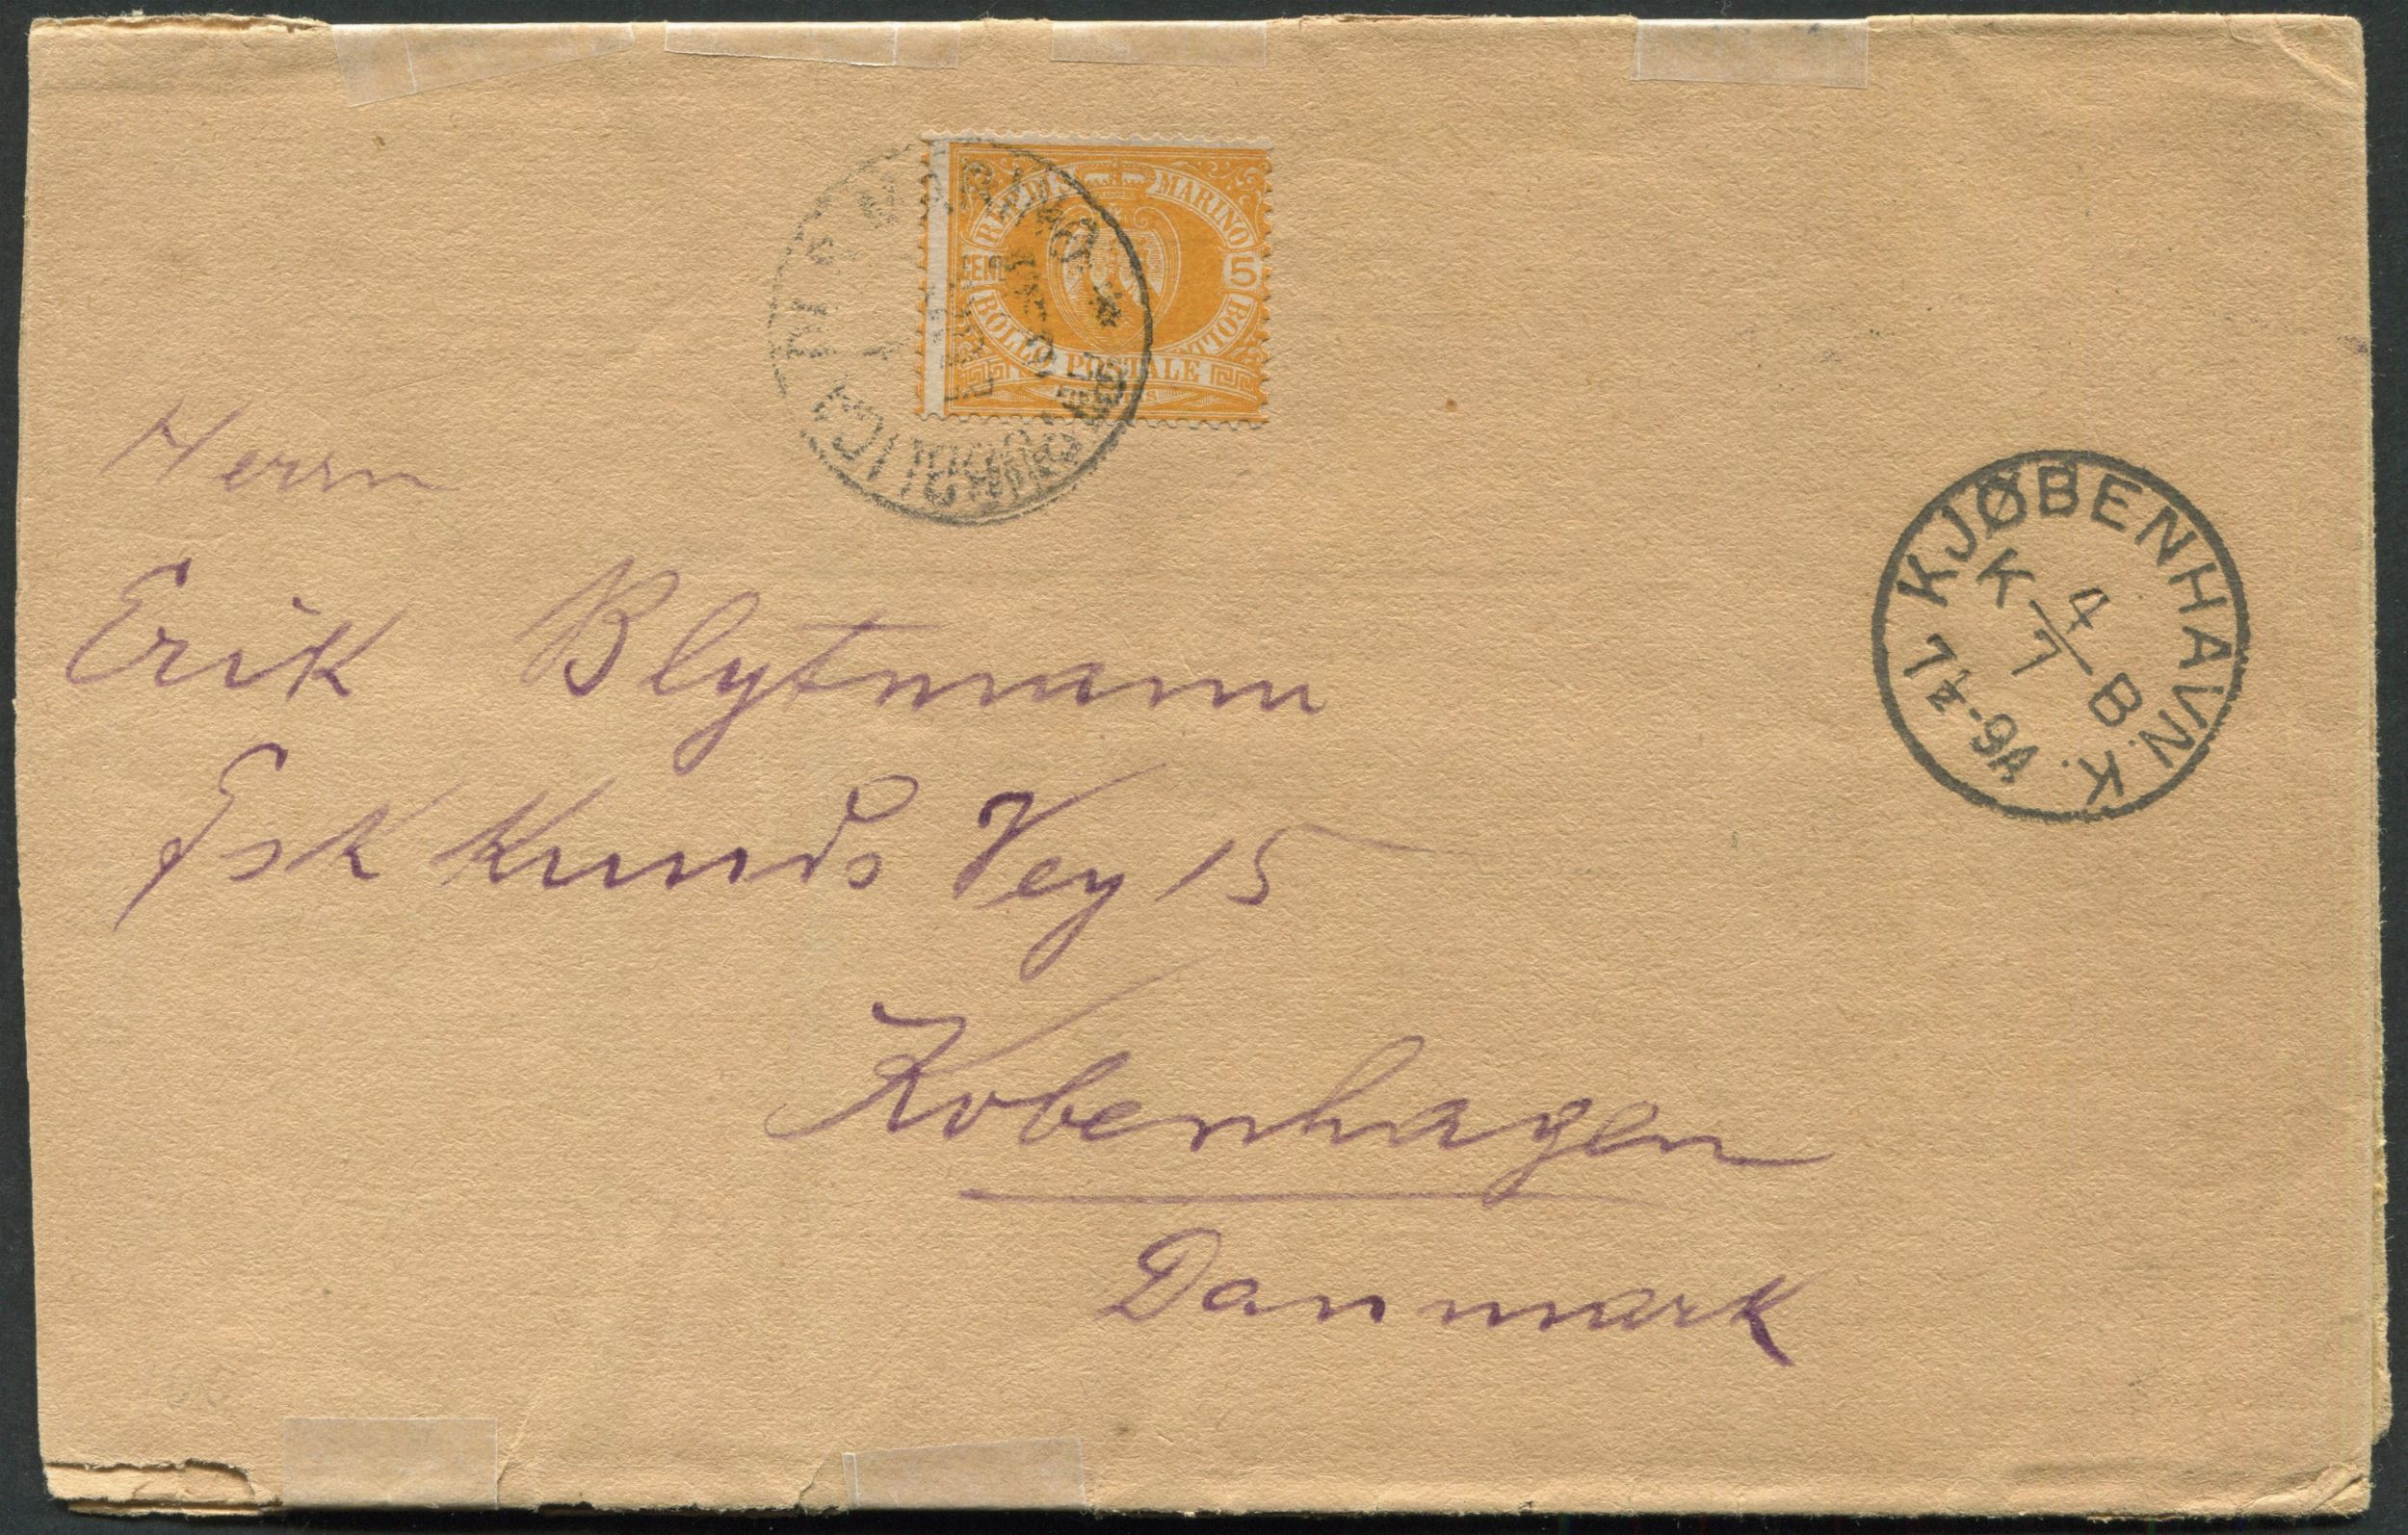 MARINO
CENT 5
BOLLO POSTALE
Herrn
Erik Blytmann
Kunds Vey 15
Kobenhagen
Danmark
KJØBENHAVN.K.
K 4 B
7
7½-9A